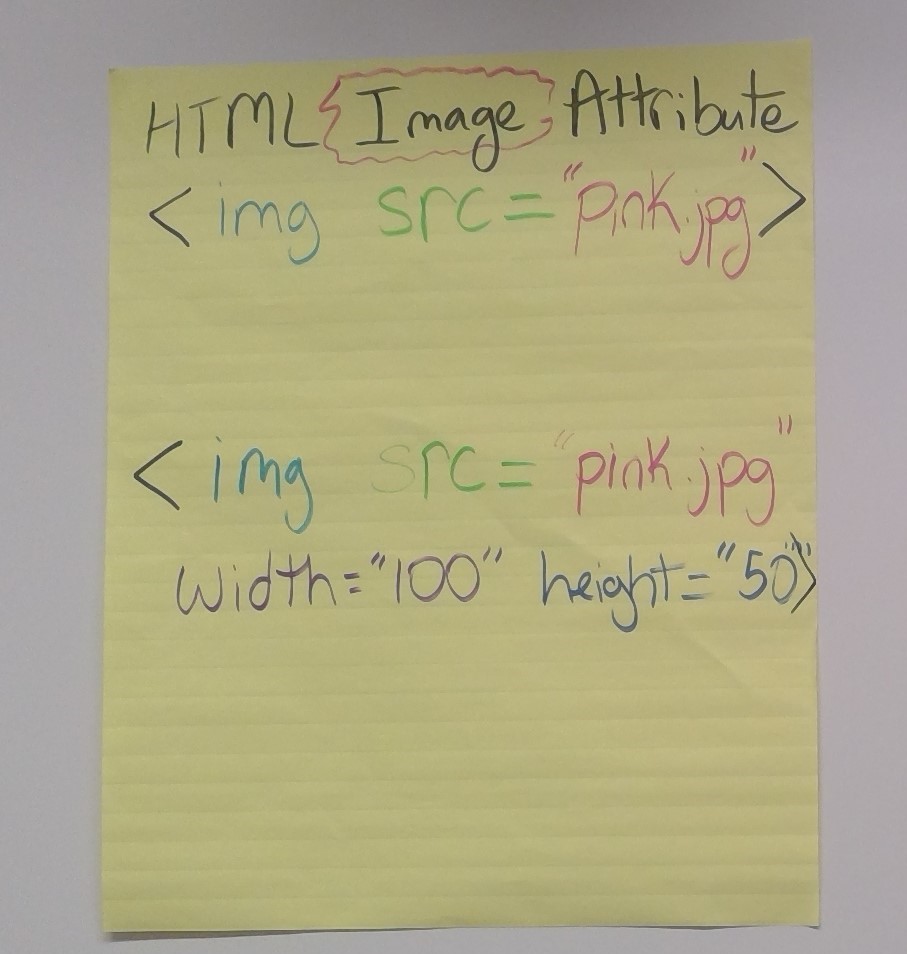 HTML Image Attribute
<img src="pink.jpg">
<img src="pink.jpg"
width="100" height="50">